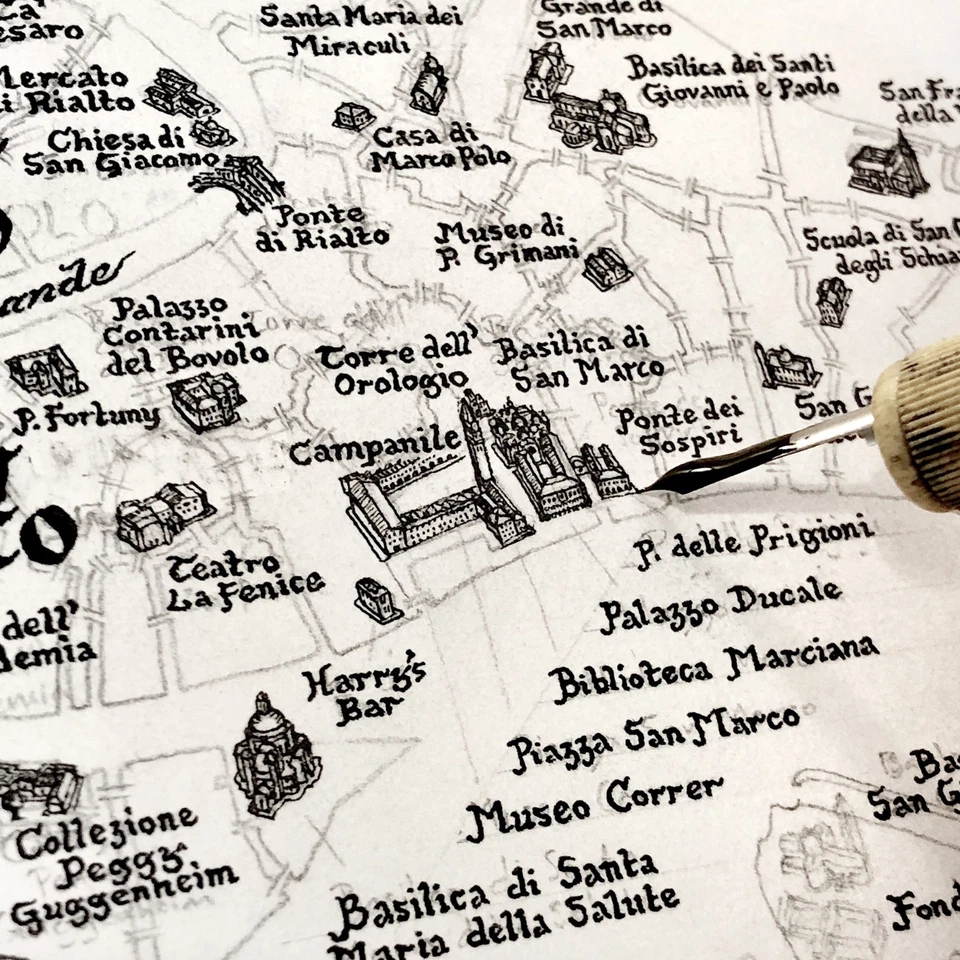 Ca'
esaro
Santa Maria dei
Miraculi
Grande di
San Marco
Mercato
di Rialto
Basilica dei Santi
Giovanni e Paolo
San Fra
della
Chiesa di
San Giacomo
Casa di
Marco Polo
Ponte
di Rialto
Museo di
P. Grimani
Scuola di San G
degli Schiav
ande
Palazzo
Contarini
del Bovolo
Torre dell'
Orologio
Basilica di
San Marco
P. Fortuny
Ponte dei
Sospiri
San G
Campanile
to
Teatro
La Fenice
P. delle Prigioni
dell'
demia
Palazzo Ducale
Harry's
Bar
Biblioteca Marciana
Piazza San Marco
Museo Correr
Bas
San G
Collezione
Peggy
Guggenheim
Basilica di Santa
Maria della Salute
Fond